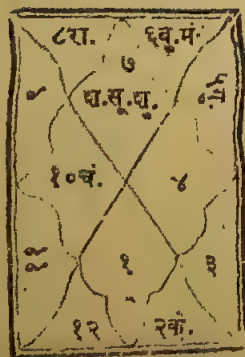 ८रा. ६बु.मं.
७
श.सू.शु.
९
१०चं. ४
११ १ ३
१२ २के.